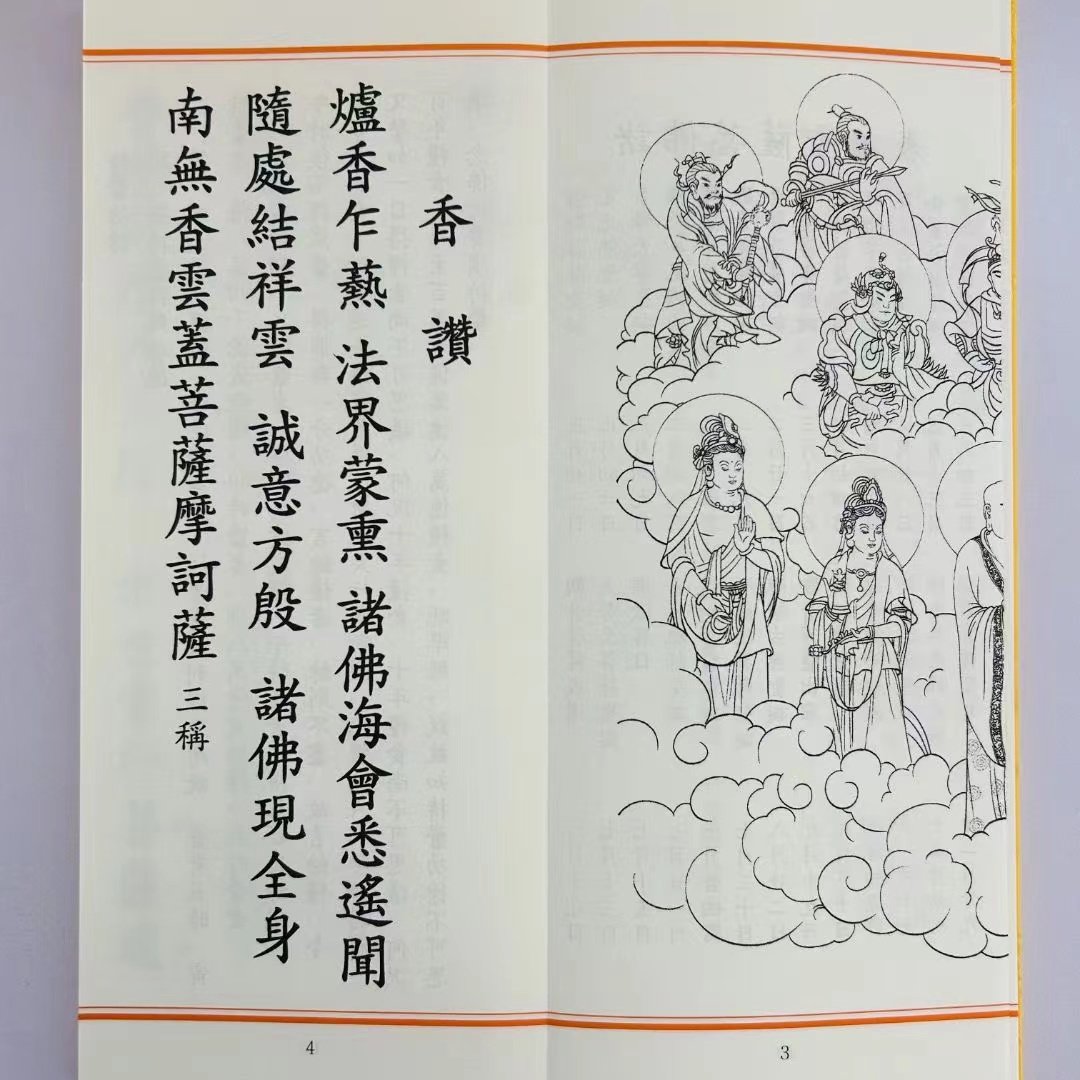 香讚
爐香乍爇 法界蒙熏 諸佛海會悉遙聞
隨處結祥雲 誠意方殷 諸佛現全身
南無香雲蓋菩薩摩訶薩 三稱
4
3